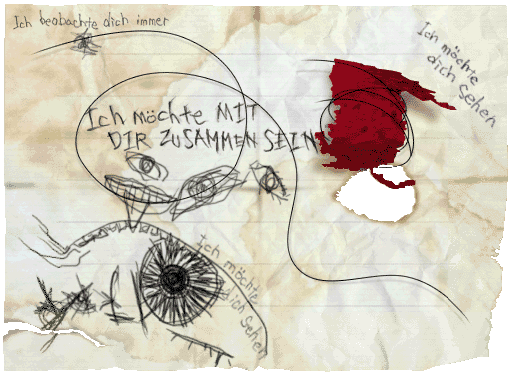 Ich beobachte dich immer
Ich möchte
dich sehen
Ich möchte MIT
DIR ZUSAMMEN SEIN
Ich möchte
dich sehen